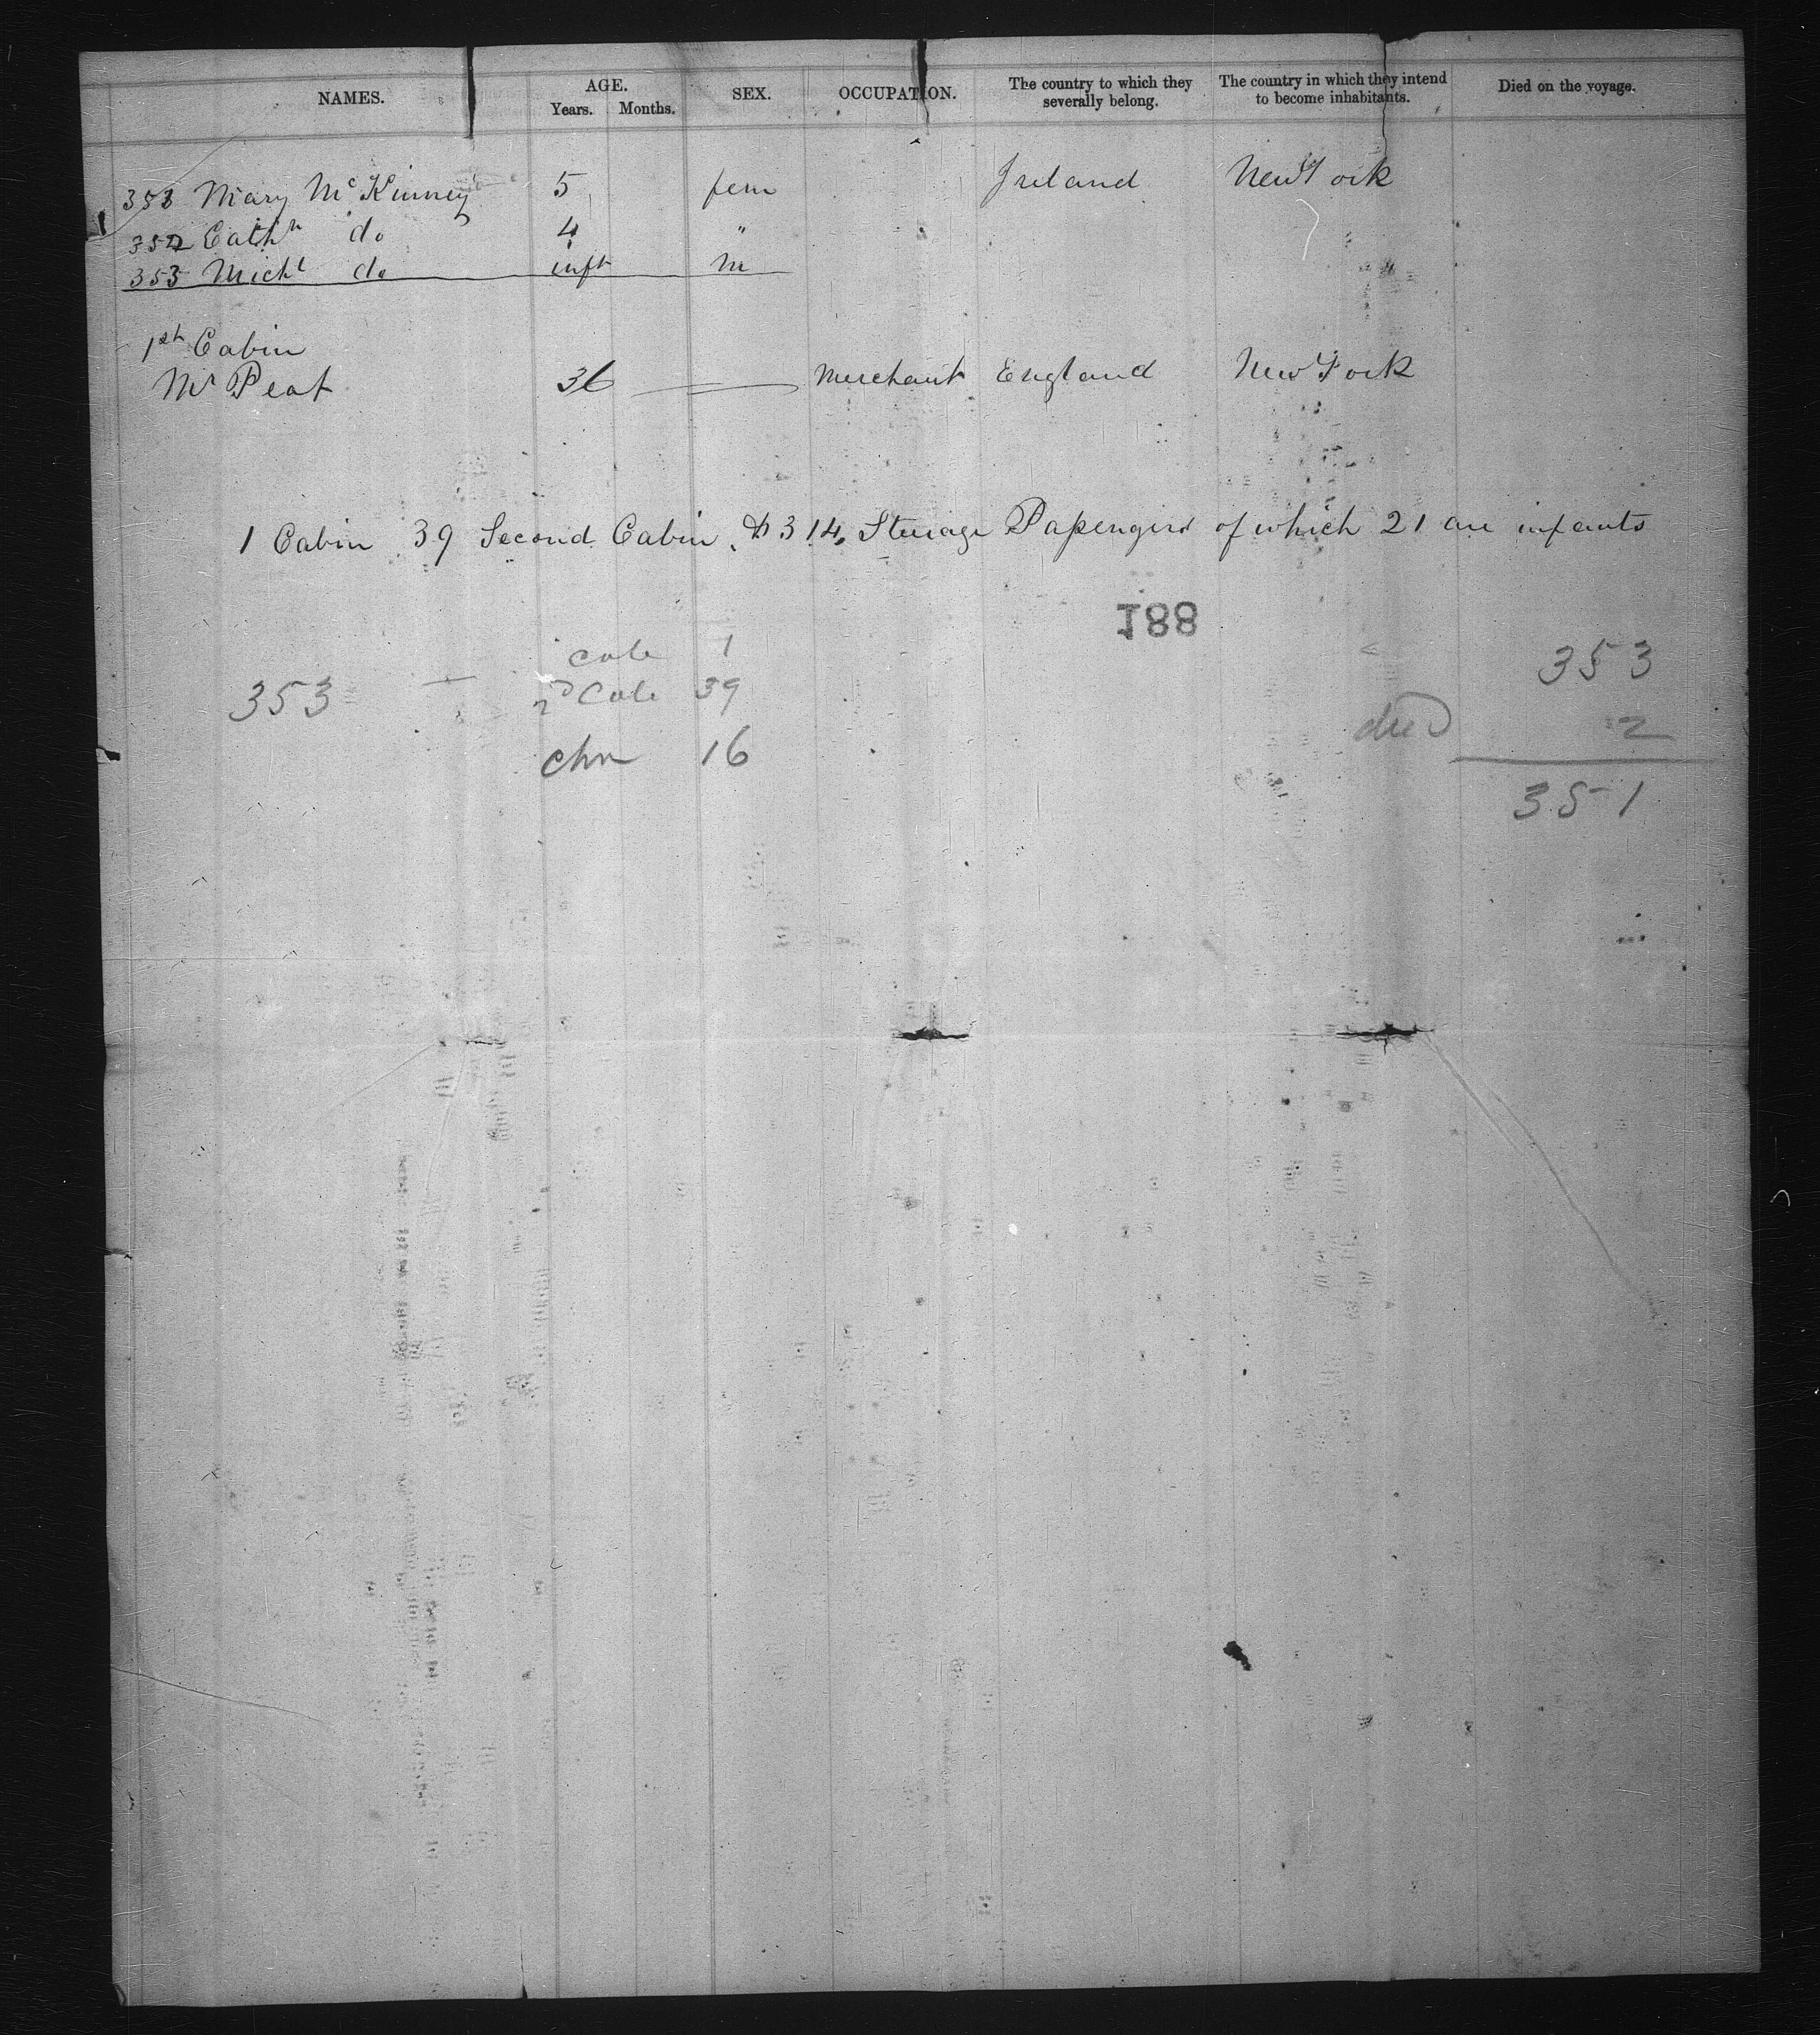 NAMES. AGE. Years. Months. SEX. OCCUPATION. The country to which they severally belong. The country in which they intend to become inhabitants. Died on the voyage.
353 Mary McKinney 5 fem Ireland New York
352 Cathn do 4 "
353 Michl do inft m
1st Cabin
Mr Peat 36 Merchant England New York
1 Cabin 39 Second Cabin & 314 Steerage Passengers of which 21 are infants
188
cab 1
353
353 2d Cab 39
died 2
chn 16
351